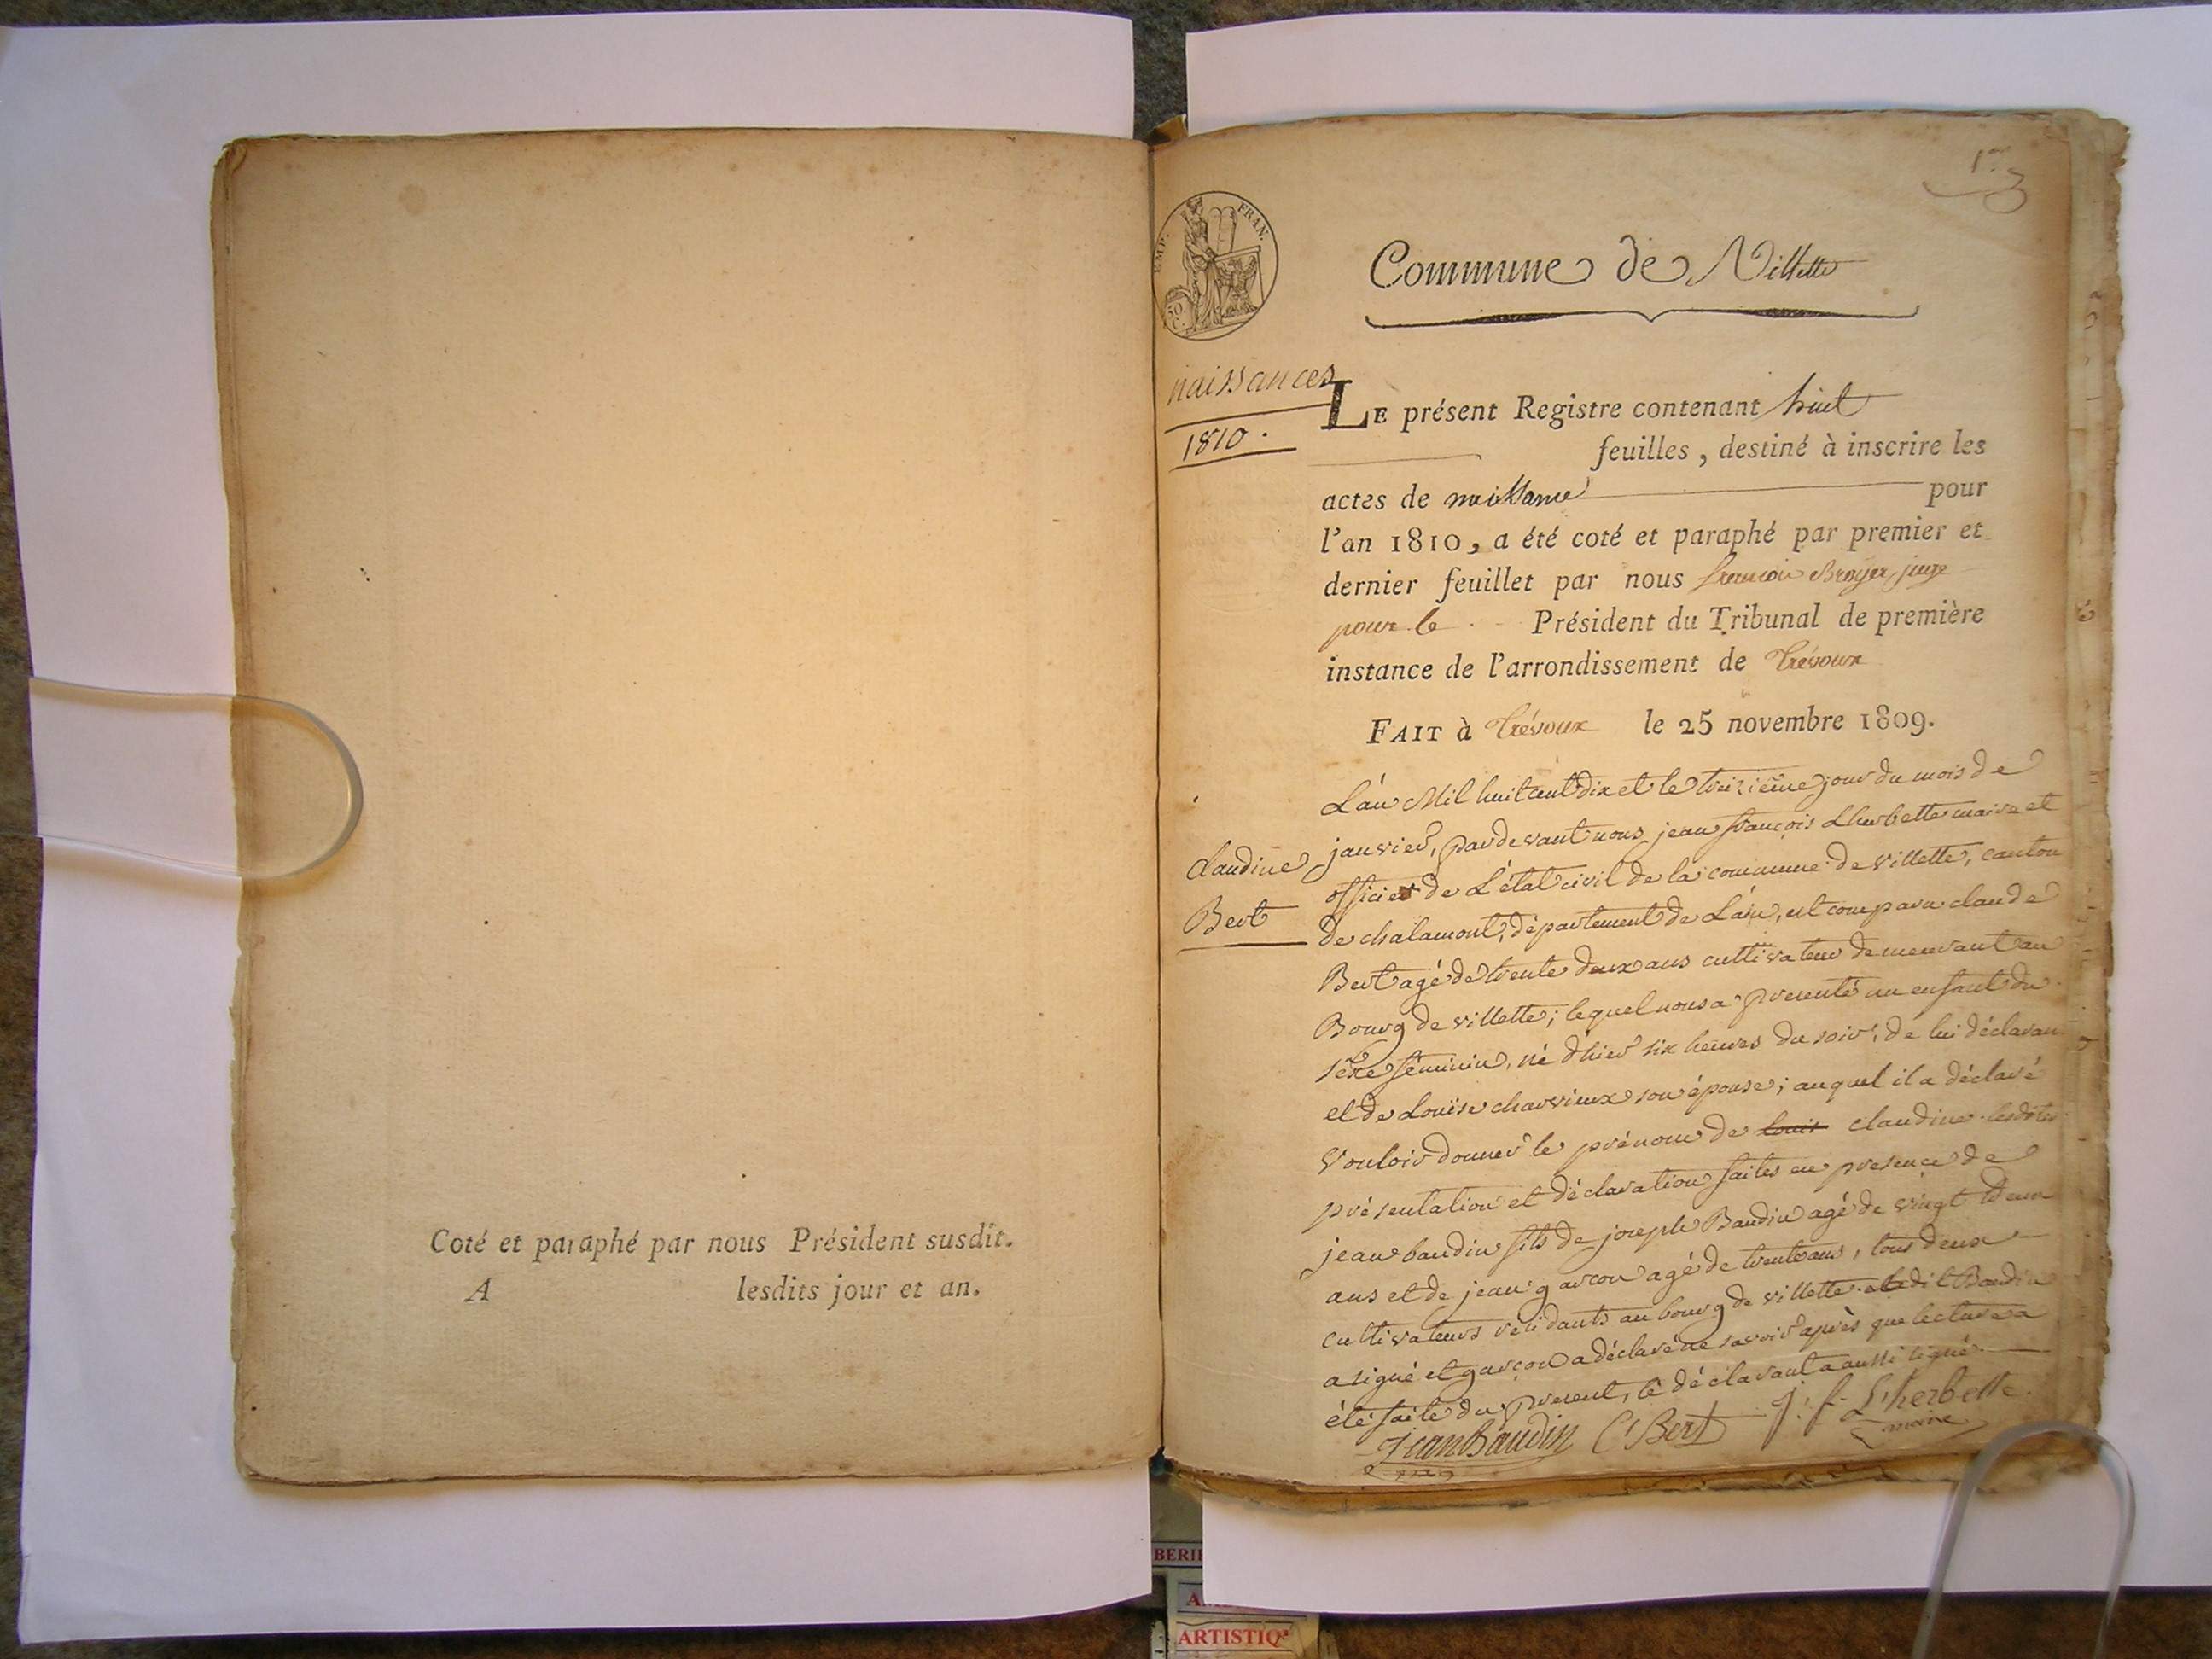 Coté et paraphé par nous Président susdit.
A lesdits jour et an.
1er
EMP. FRAN.
50 C.
Commune de Villette
naissances
1810.
LE présent Registre contenant huit
feuilles, destiné à inscrire les
actes de naissance pour
l'an 1810, a été coté et paraphé par premier et
dernier feuillet par nous françois Broyer, juge
pour le Président du Tribunal de première
instance de l'arrondissement de Trévoux
FAIT à Trévoux le 25 novembre 1809.
Claudine
Bert
L'an Mil huit cent dix et le treizième jour du mois de
janvier, pardevant nous jean françois Lherbette maire et
officier de L'état civil de la commune de villette, canton
de chalamont, département de L'ain, est comparu claude
Bert agé de trente deux ans cultivateur demeurant au
Bourg de villette; lequel nous a presenté un enfant du
sexe féminin, né d'hier six heures du soir, de lui déclarant
et de Louise charvieux son épouse; auquel il a déclaré
vouloir donner le prénom de louis claudine lesdites
présentation et déclaration faites en presence de
jean baudin fils de joseph Baudin agé de vingt deux
ans et de jean garcon agé de trente ans, tous deux
cultivateurs residants au bourg de villette. ledit Baudin
a signé et garçon a déclaré ne savoir après que lecture a
été faite du present, le déclarant a aussi signé.
Jean Baudin C Bert J. f. Lherbette
maire
BERI
ARTISTIQ